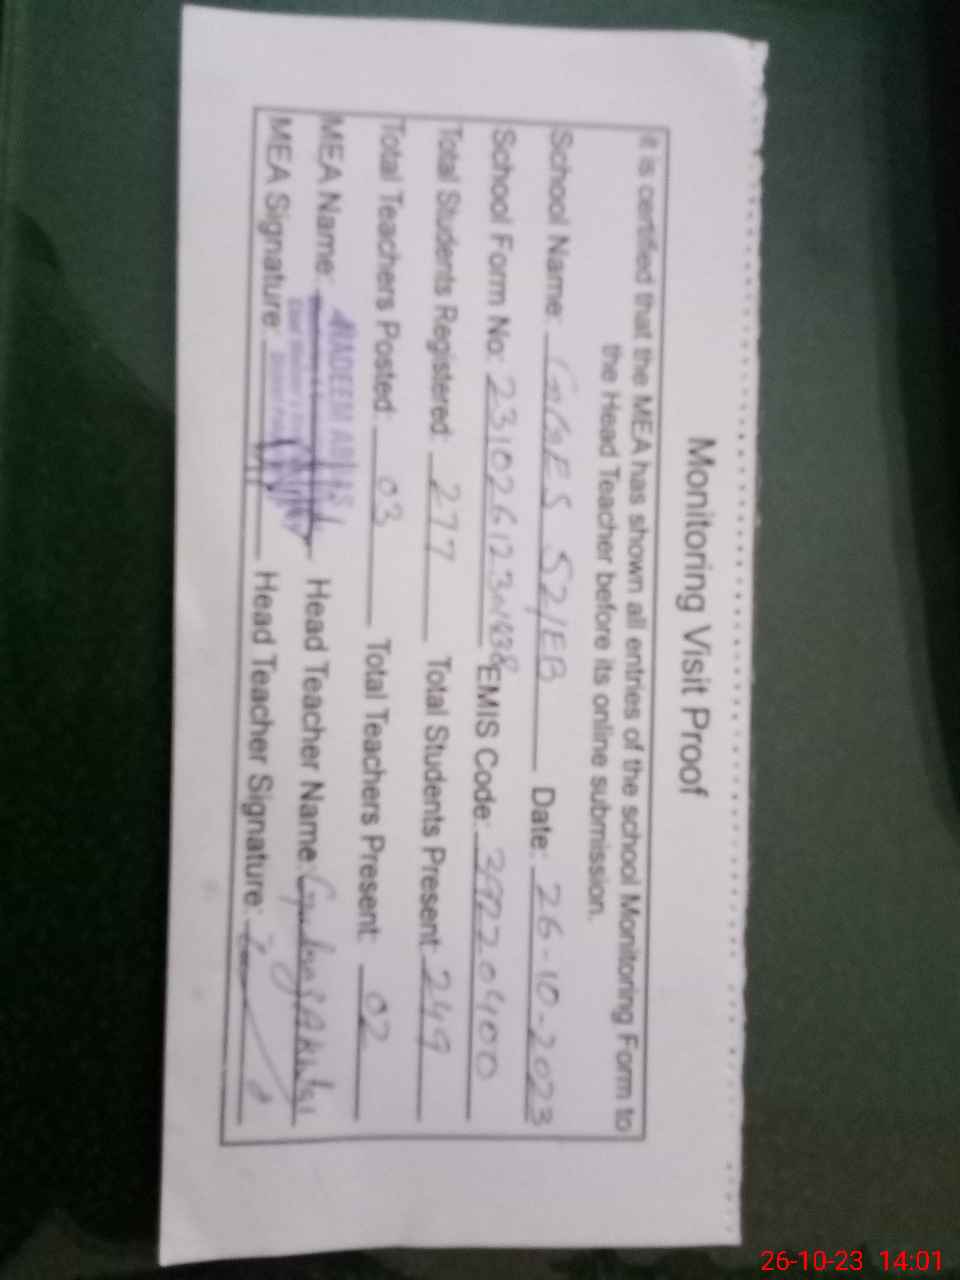 Monitoring Visit Proof
It is certified that the MEA has shown all entries of the school Monitoring Form to
the Head Teacher before its online submission.
School Name: GGES 52/EB Date: 26-10-2023
School Form No: EMIS Code: 39220400
Total Students Registered: 277 Total Students Present: 249
Total Teachers Posted: 03 Total Teachers Present: 02
MEA Name: NADEEM ABBAS Head Teacher Name:
MEA Signature: Head Teacher Signature:
26-10-23 14:01